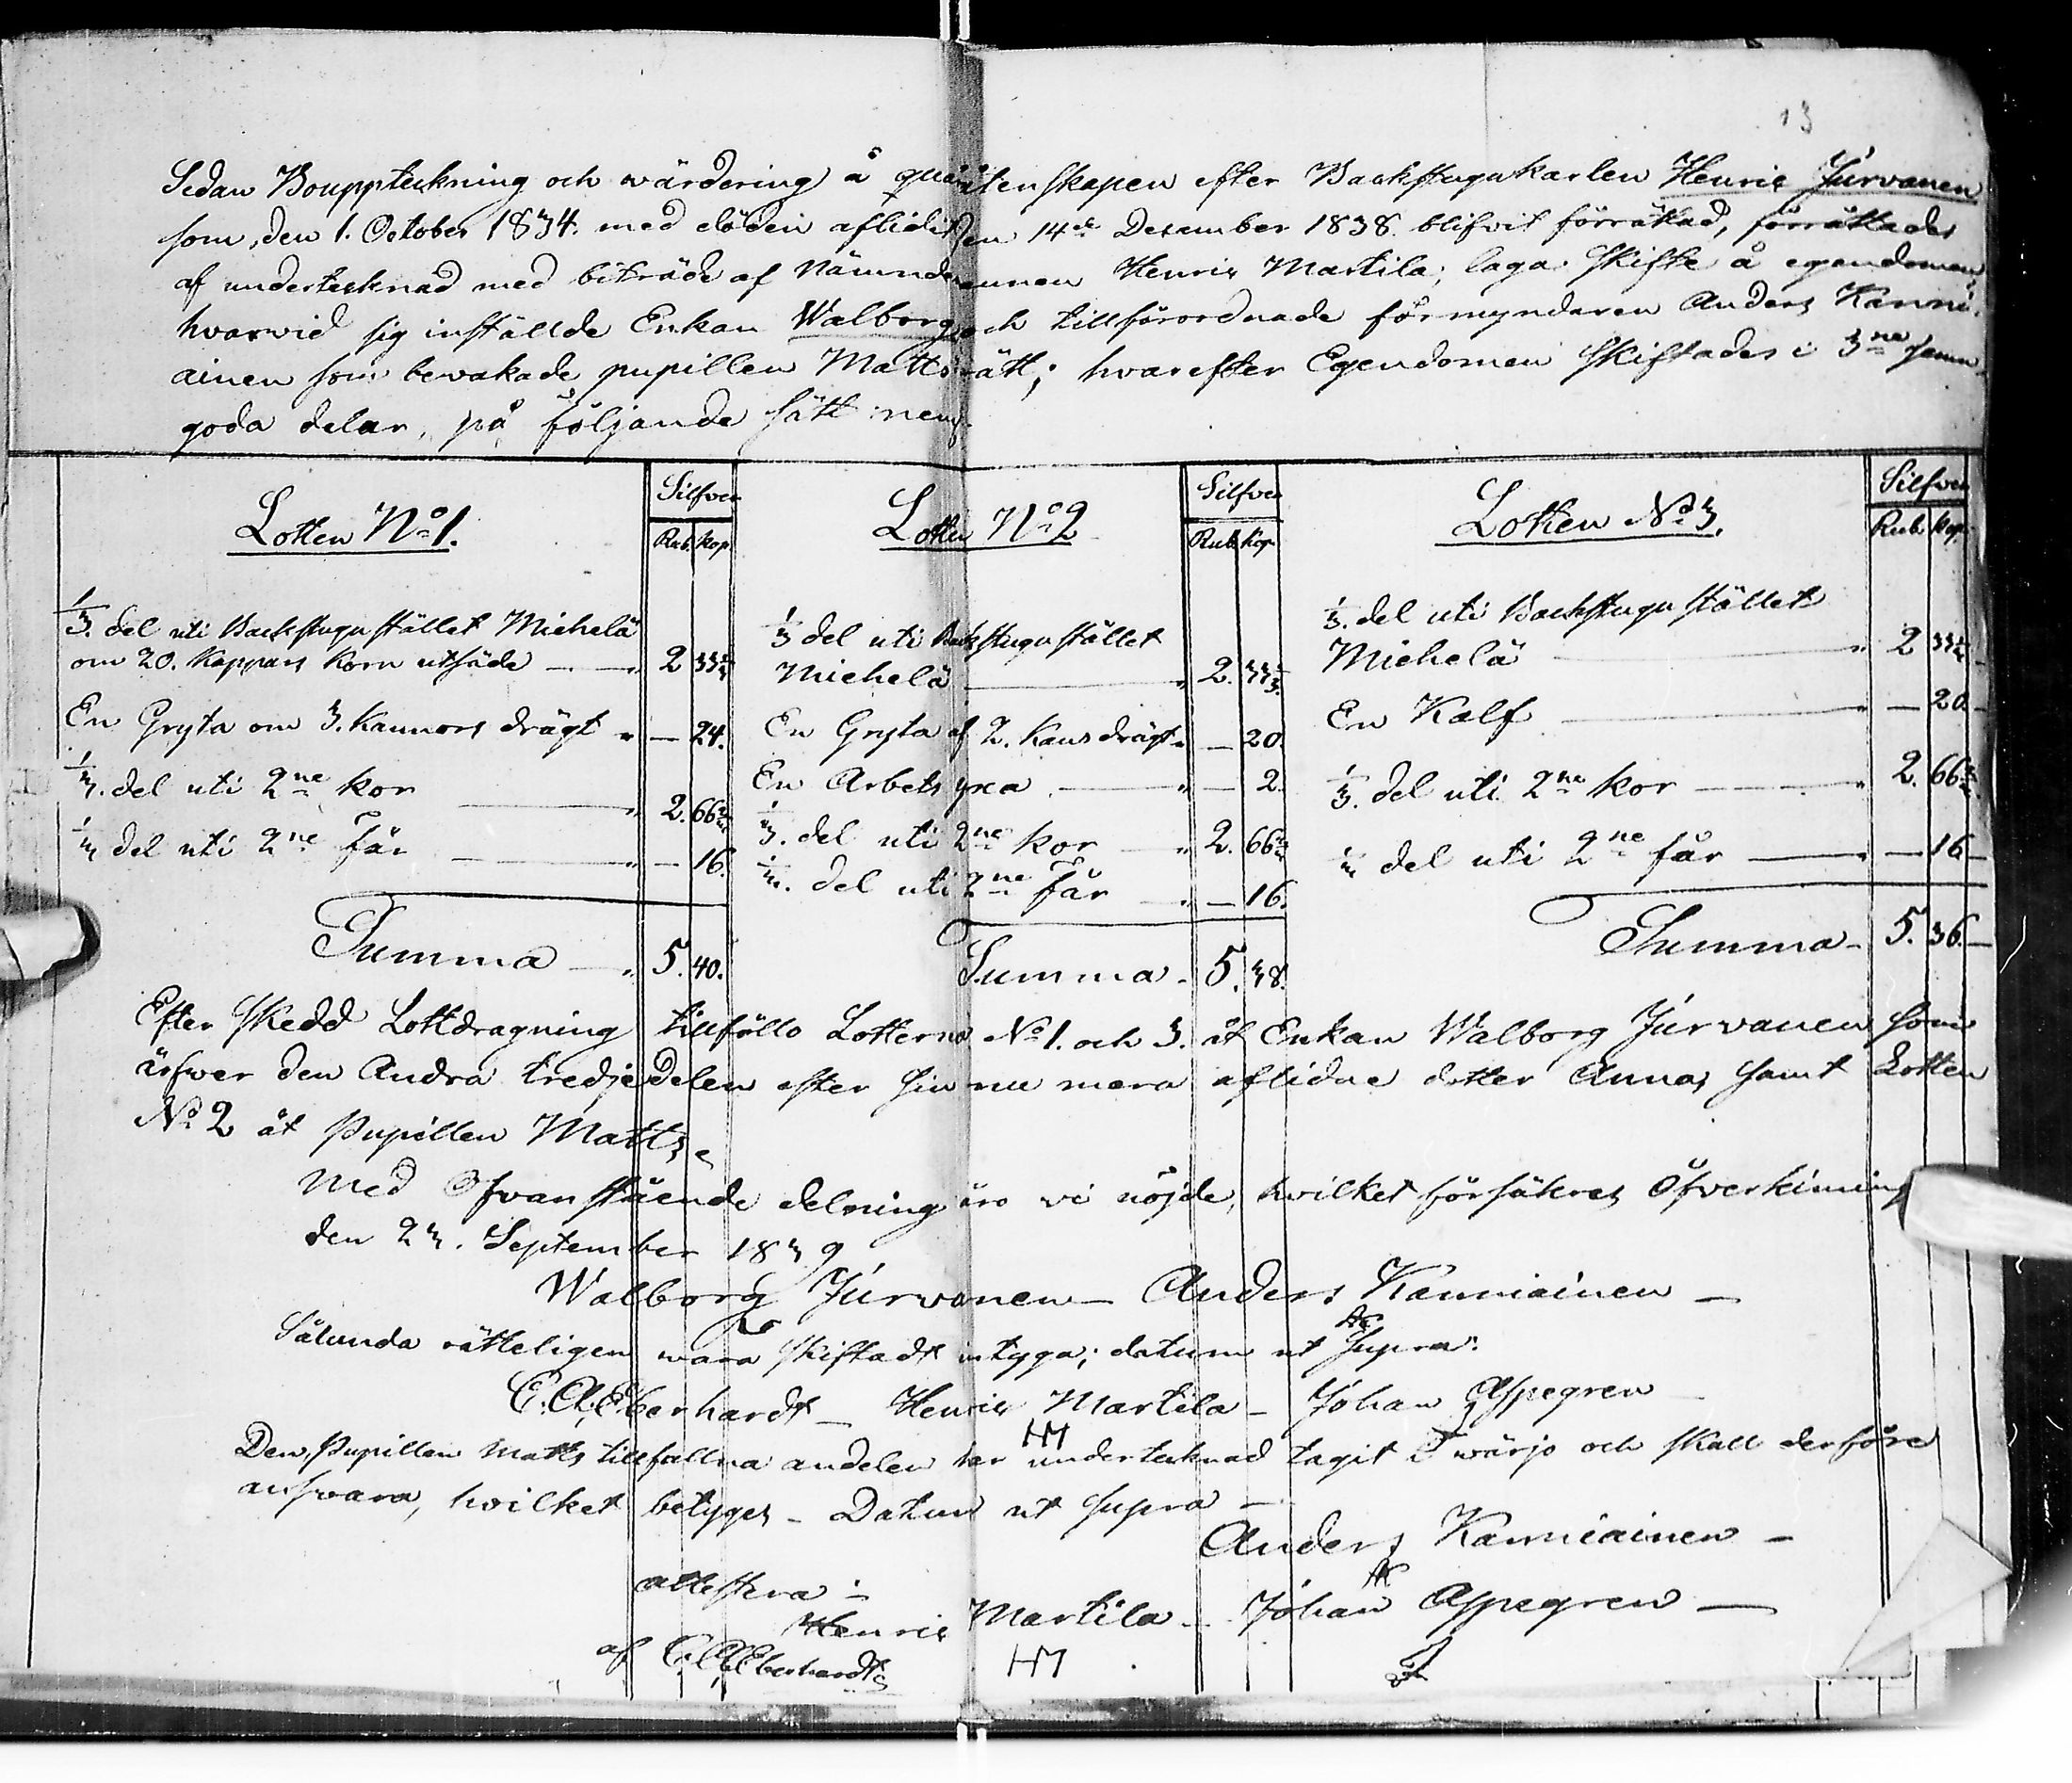 13
Sedan Bouppteckning och wärdering å quarlåtenskapen efter Backstugukarlen Henric Jurvanen
som, den 1. October 1834. med döden aflidit den 14de December 1838. blifvit förrättad, förrättades
af undertecknad med biträde af Nämndemannen Henric Martila, laga Skifte å egendomen
hvarvid sig inställde Enkan Walborg och tillförordnade förmyndaren Anders Kanni-
ainen som bevakade pupillen Matts rätt; hvarefter Egendomen Skiftades i 3ne jemn
goda delar, på följande sätt nemt.
Lotten No 1. Silfver Rub. kop.
1/3. del uti Backstugu stället Michelä
om 20. Kappars Korn utsäde — " 2 33 1/3
En Gryta om 3. Kannors drägt " — 24.
1/3. del uti 2ne kor — " 2. 66 2/3
1/3 del uti 2ne får — " — 16.
Summa — " 5. 40.
Lotten No 2 Silfver Rub. kop.
1/3 del uti Backstugu stället
Michelä — " 2. 33 1/3.
En Gryta af 2. Kans drägt " — 20.
En Arbets yxa — " — 2.
1/3. del uti 2ne kor — " 2. 66 2/3
1/3. del uti 2ne får — " — 16.
Summa - 5. 38.
Lotten No 3. Silfver Rub. kop.
1/3. del uti Backstugu stället
Michelä — " 2 33 1/3 -
En Kalf — " — 20. -
1/3. del uti 2ne kor — " 2. 66 2/3
1/3 del uti 2ne får — " — 16 -
Summa - 5. 36. —
Efter Skedd Lottdragning tillföllo Lotterna No 1. och 3. åt Enkan Walborg Jurvanen som
ärfwer den Andra tredjedelen efter sin nu mera aflidne dotter Anna, samt Lotten
No 2 åt Pupillen Matts.
Med Ofvanstående delning äro vi nöjde, hvilket försäkras Öfverkiming
den 23. September 1839
Walborg Jurvanen — Anders Kanniainen —
AK
Sålunda rätteligen wara Skiftadt intyga; datum ut Supra:
C. A. Eberhardt — Henric Martila — Johan Aspegren
HM
Den, Pupillen Matts tillfallna andelen har undertecknad tagit i wärjo och skall derföre
answara, hvilket betygas — Datum ut supra —
Anders Kanniainen —
AK
attestera:
Henric Martila — Johan Aspegren —
HM
af C. A. Eberhardt